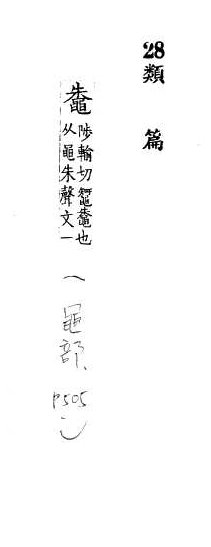 28 類篇
鼄
陟輸切鼅鼄也
从黽朱聲文一
(黽部、P505)